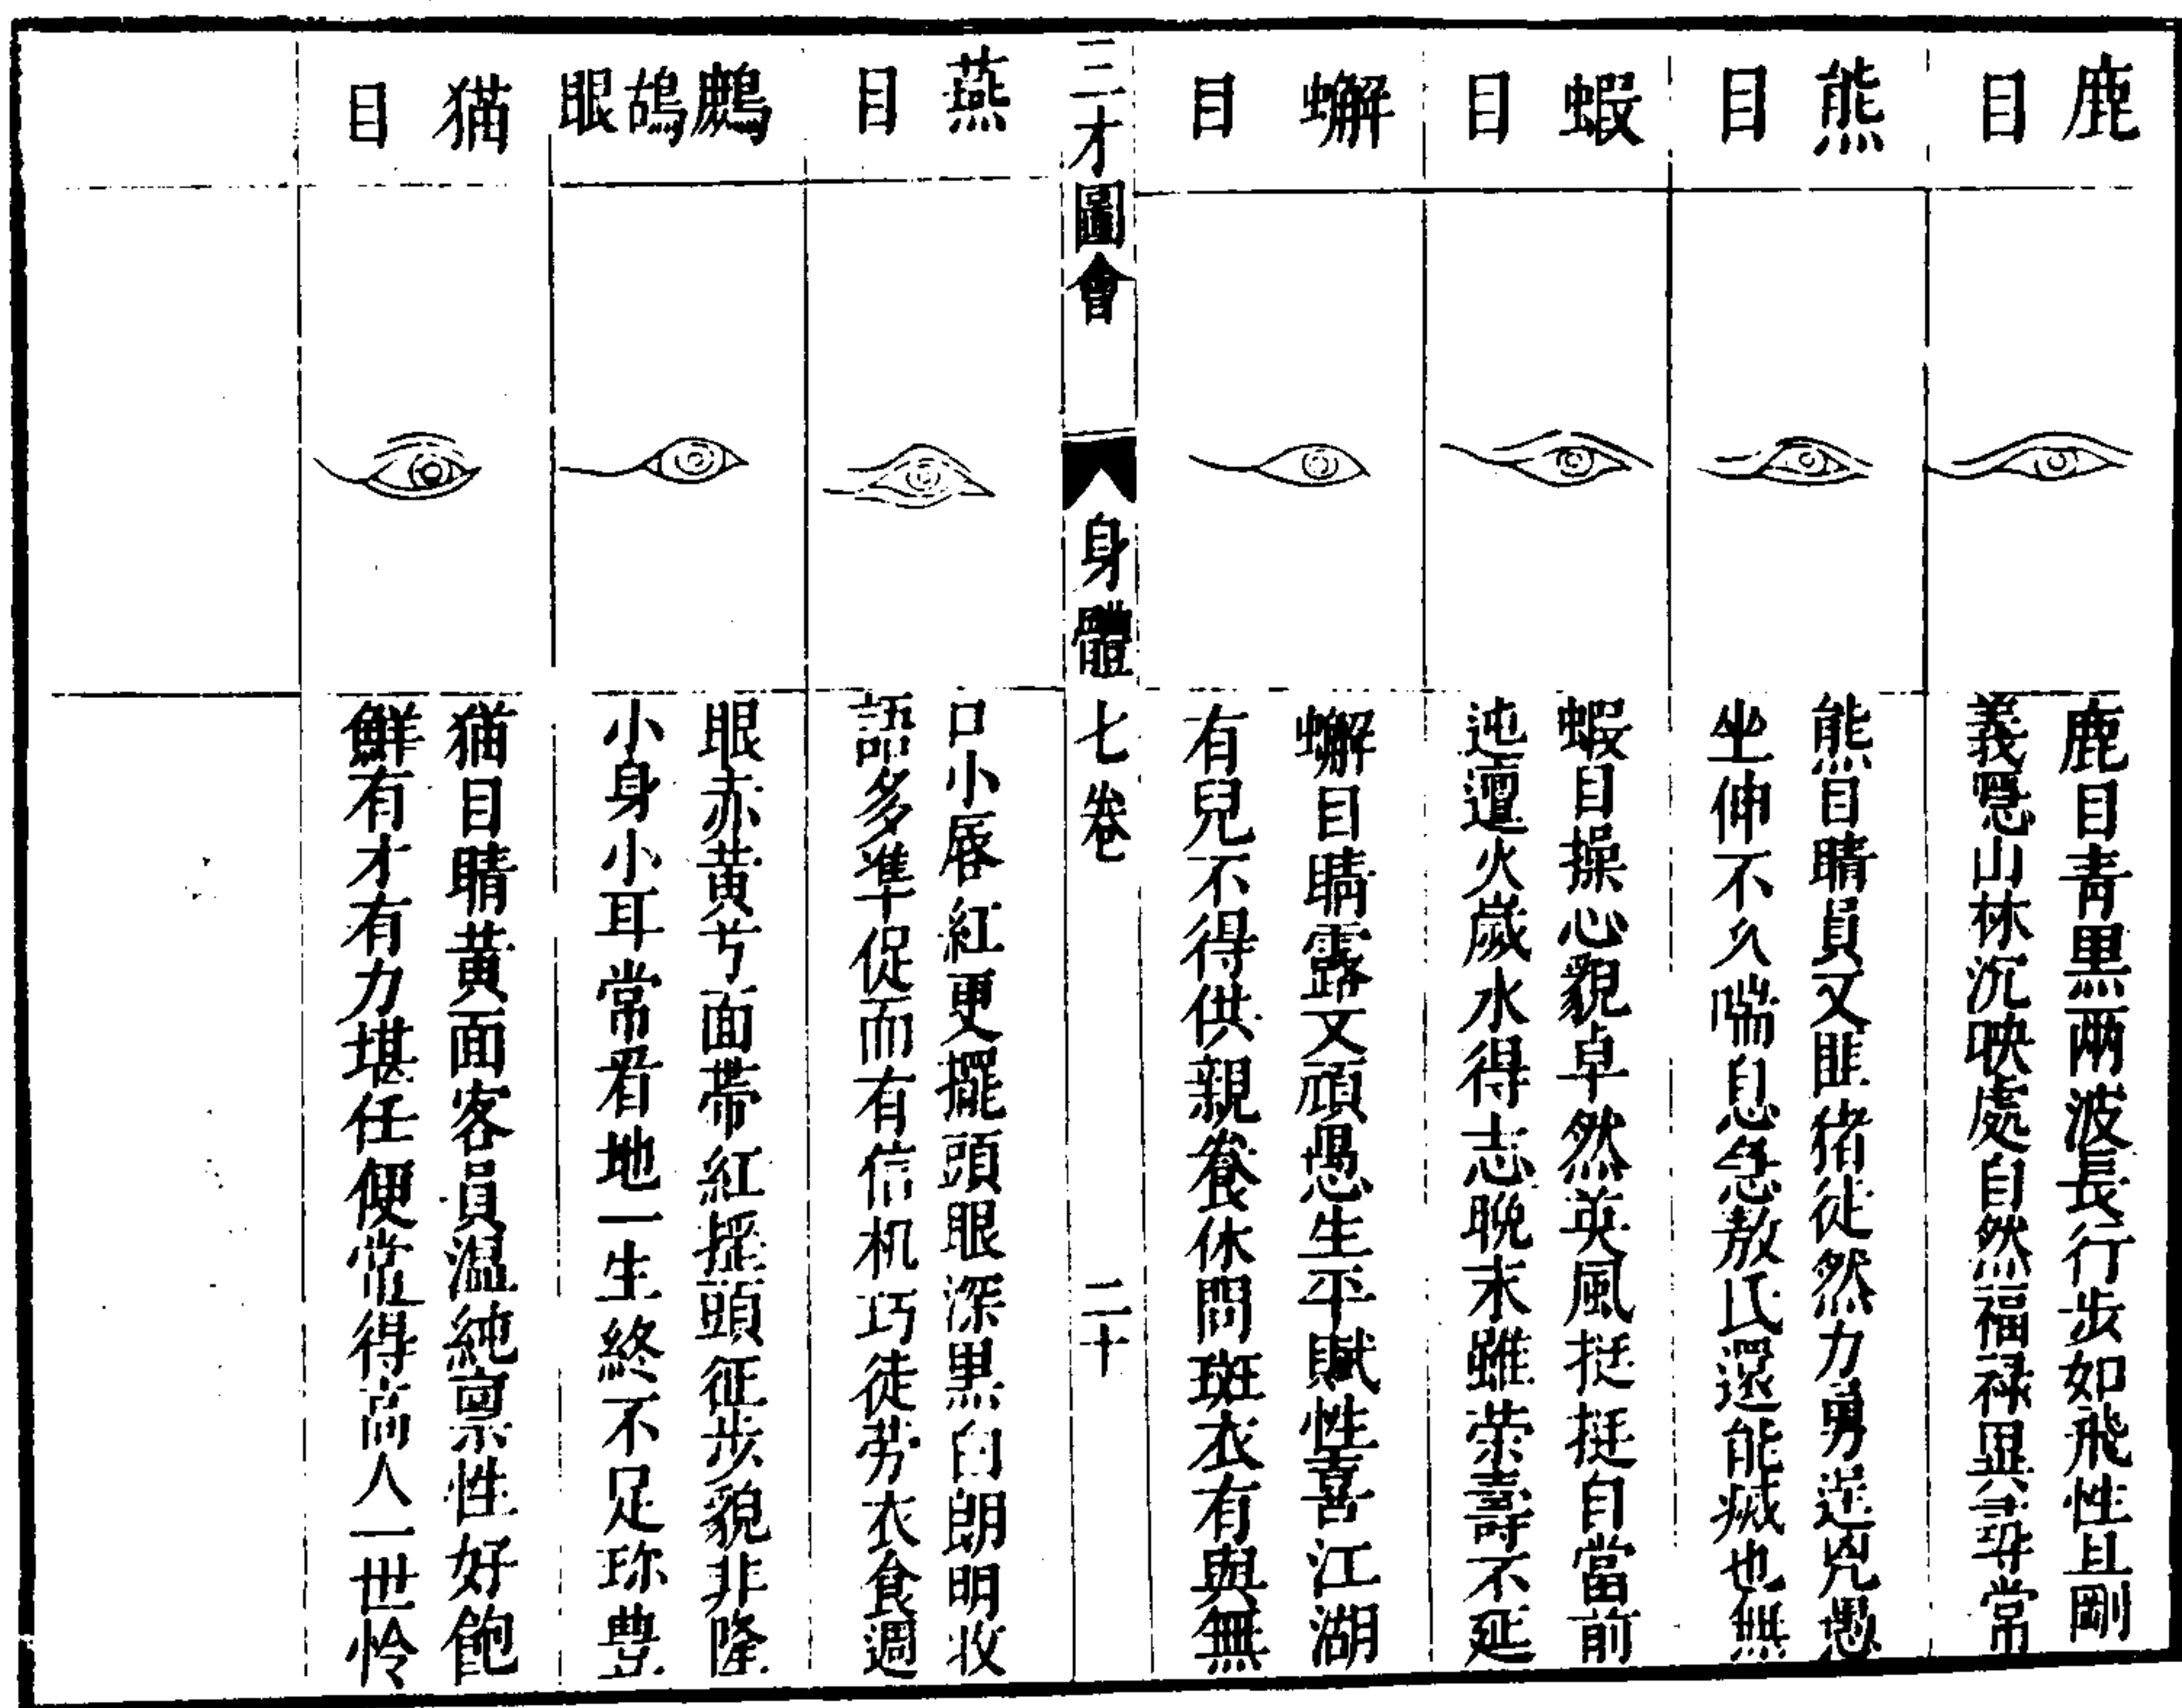 鹿目
鹿目青黑兩波長行步如飛性且剛
義隱山林沉映處自然福祿異尋常
熊目
熊目睛員又匪猪徒然力勇逞兇愚
坐伸不久喘息急敖氏還能滅也無
蝦目
蝦目操心貌卓然英風挺挺自當前
迍邅火歲水得志晚末雖荣壽不延
蠏目
蠏目睛露又頑愚生平賦性喜江湖
有兒不得供親養休問斑衣有與無
三才圖會 身體 七卷 二十
燕目
口小唇紅更擺頭眼深黒白朗明收
語多準促而有信机巧徒劳衣食週
鷓鴣眼
眼赤黄兮面帶紅搖頭征步貌非隆
小身小耳常看地一生終不足珎豊
猫目
猫目睛黃面客員溫純稟性好飽
鮮有才有力堪任便常得高人一世怜